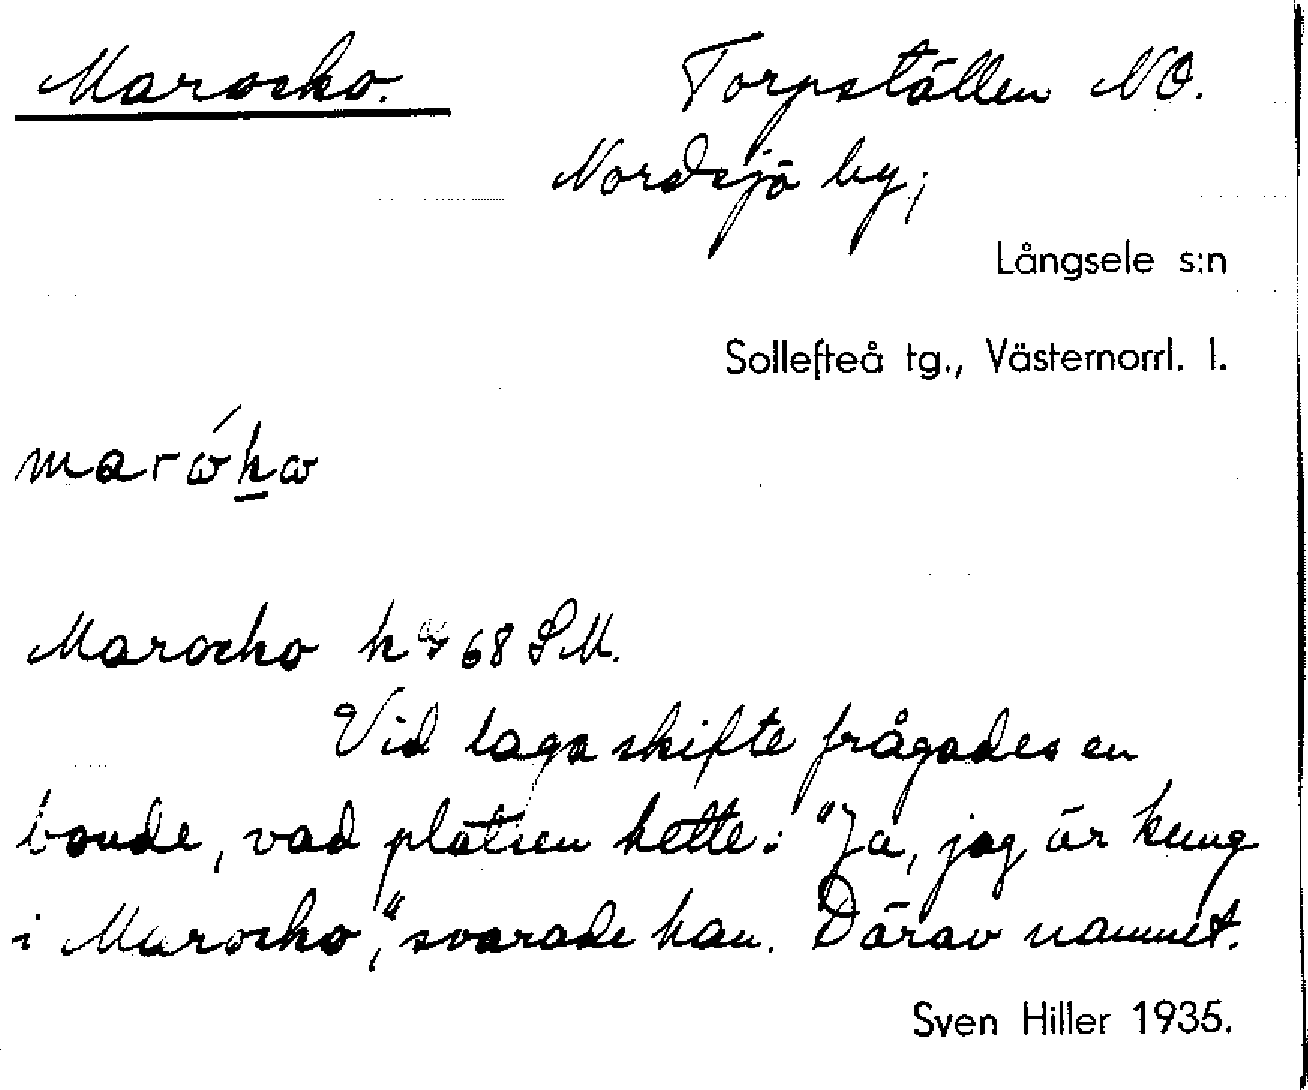 Marocko. Torpställen NO.
Nordsjö by;
Långsele s:n
Sollefteå tg., Västernorrl. l.
marώkω
Marocko k 68 SM.
Vid laga skifte frågades en
bonde, vad platsen hette: "Ja, jag är kung
i Marocko," svarade han. Därav namnet.
Sven Hiller 1935.